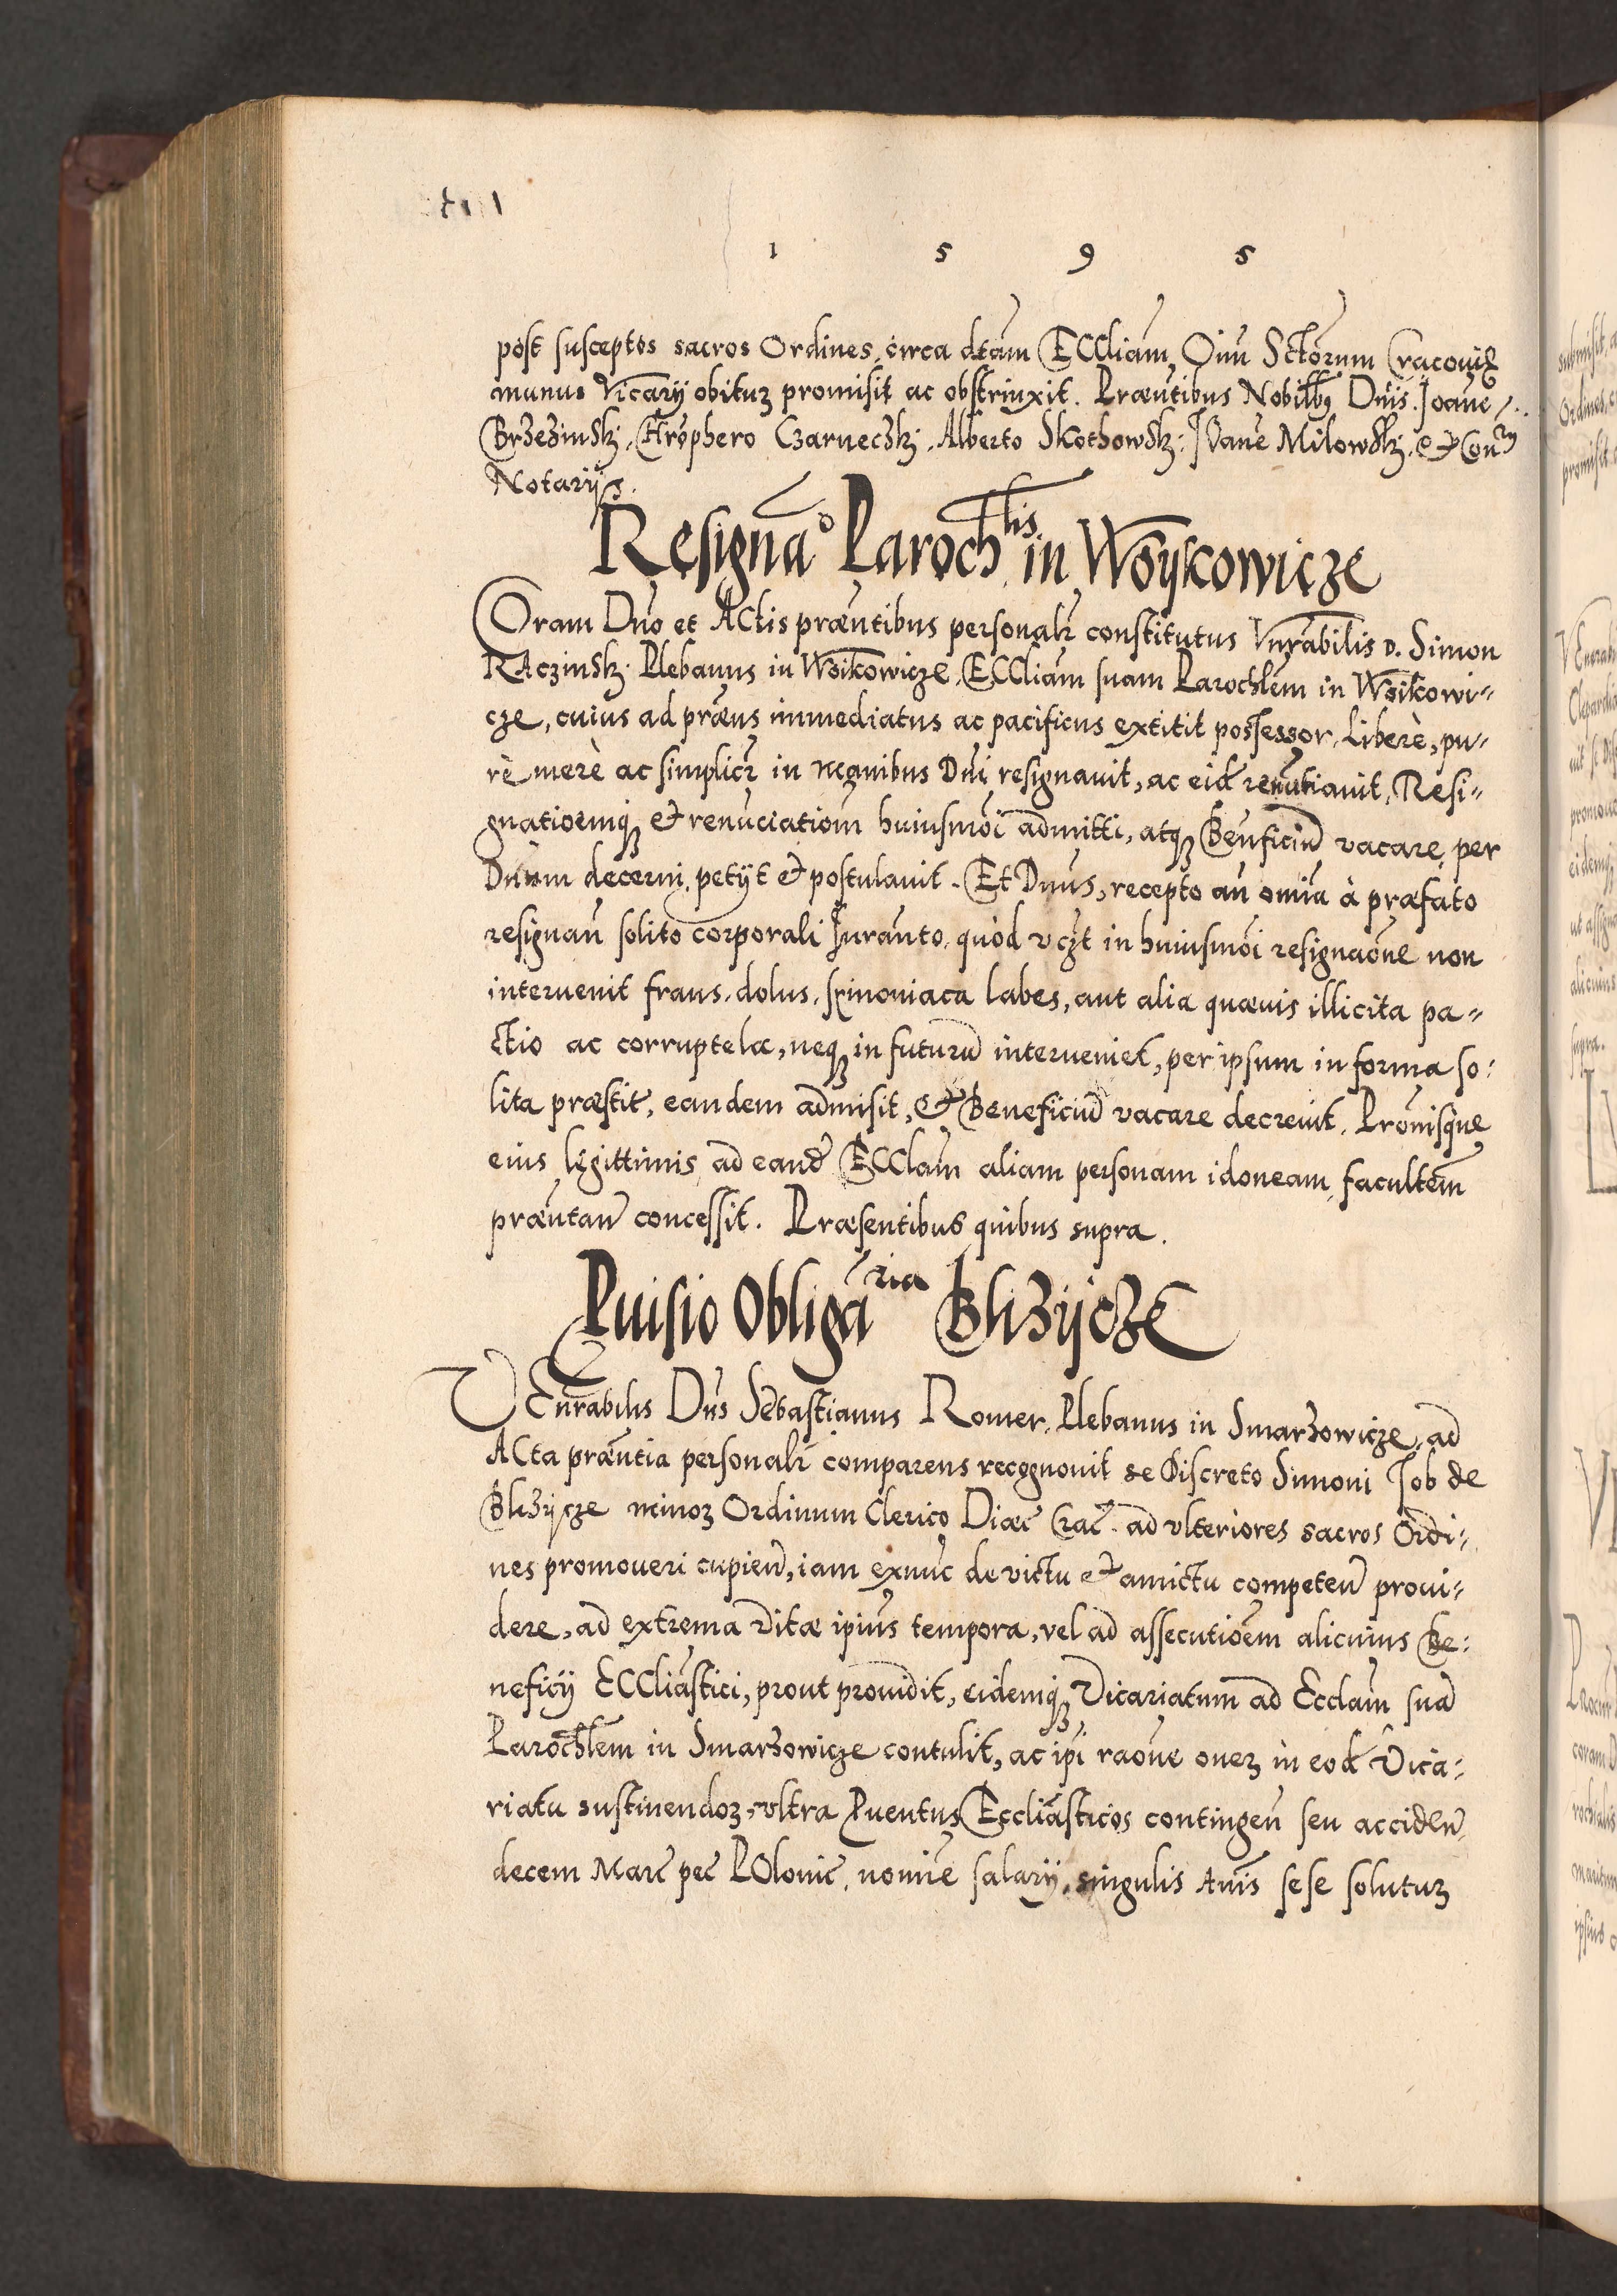 1 5 9 5
post susceptos sacros Ordines, circa dtam ECCliam Oim Sctorum Cracouię
munus Vicarij obituꝫ promisit ac obstrinxit. Præntibus Nobilibꝫ Dnis. Joane
Brzezinskj, Chrophero Czarneczkj, Alberto Skothowskj, Joane Milowskj, et Con
Notarijs.
Resignao Parochlis in Woÿkowicze
Coram Dno et ACtis præntibus personalr constitutus Vnrabilis D. Simon
RAczinskj Plebanus in Woikowicze, ECCliam suam Parochlem in Woikowi-
cze, cuius ad præns immediatus ac pacificus extitit possessor, Liberè, pu-
rè merè ac simplicr in manibus Dni resignauit, ac eid renutiauit, Resi-
gnatioemqꝫ et renunciatiom huiusmoi admitti, atqꝫ Benficiu vacare per
Dnum decerni petijt et postulauit. Et Dnus, recepto an omia à præfato
resignan solito corporali Juranto, quòd vcꝫt in huiusmoi resignaone non
interuenit fraus, dolus, symoniaca labes, aut alia quæuis illicita pa-
ctio ac corruptelæ, neqꝫ in futuru interueniet, per ipsum in forma so-
lita præstit, eandem admisit, et Beneficiu vacare decreuit. Pronisque
eius legittimis ad eand ECClam aliam personam idoneam facultem
præntan concessit. Præsentibus quibus supra.
Puisio Obligaria Blizÿcze
VEnrabilis Dns Sebastianus Romer, Plebanus in Smarzowicze, ad
ACta præntia personalr comparens recognouit se Discreto Simoni Job de
Blizÿcze minoꝫ Ordinum Clerico Diæc Crac. ad vlteriores sacros Ordi-
nes promoueri cupien, iam exnuc de victu et amictu competen proui-
dere, ad extrema vitæ ipius tempora, vel ad assecutioem alicuius Be-
neficij ECCliastici, prout prouidit, eidemqꝫ Vicariatum ad Ecclam sua
Parochlem in Smarzowicze contulit, ac ipi raone oneꝫ in eod Vica-
riatu sustinendoꝫ, vltra Puentus Eccliasticos contingen seu acciden
decem Marc pec POlonic. nomie salarij, singulis Anis sese solutuꝫ